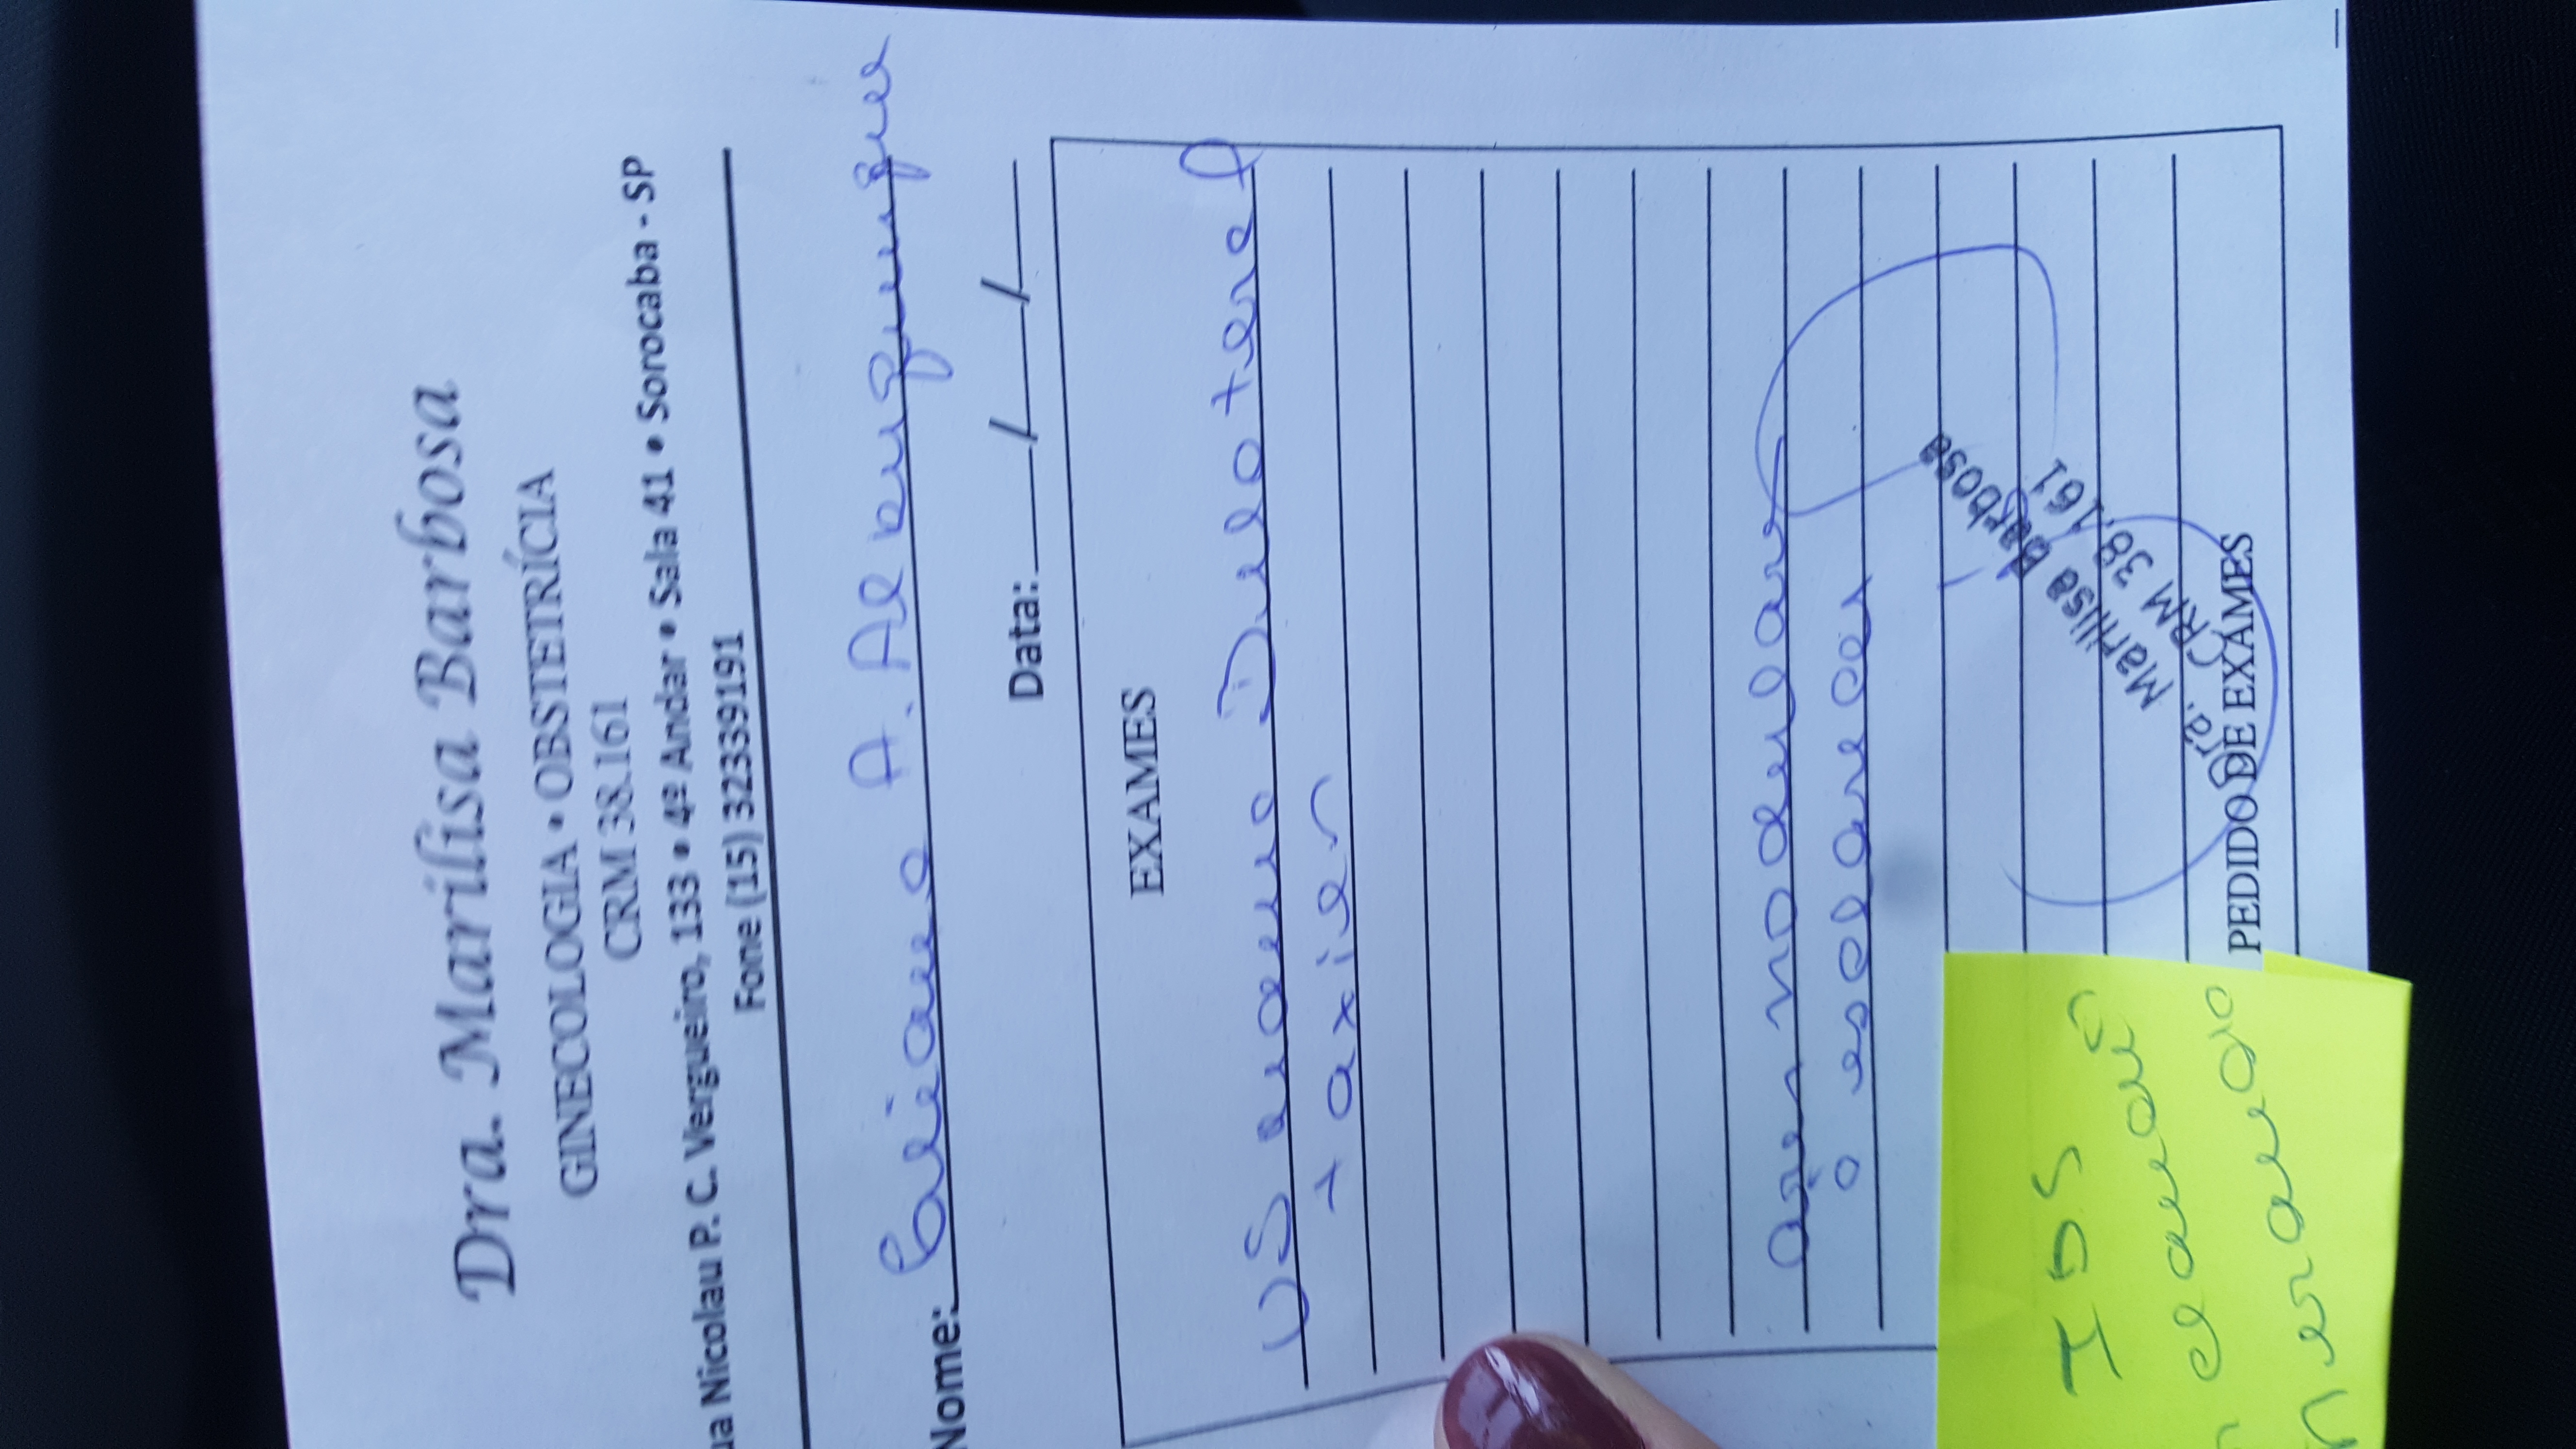 Dra. Marilisa Barbosa
GINECOLOGIA • OBSTETRÍCIA
CRM 38.161
ua Nicolau P. C. Vergueiro, 133 • 4º Andar • Sala 41 • Sorocaba - SP
Fone (15) 32339191
Nome: A. Albuquerque
Data: / /
EXAMES
US mama Bilateral
+ axilar
area nodular
à esclarecer
Dra. Marilisa Barbosa
CRM 38.161
PEDIDO DE EXAMES
IDS